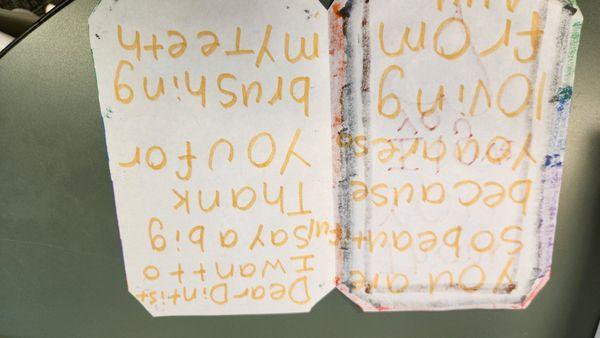 Dear Dintist
I want to
Say a big
Thank
You for
brushing
my Teeth
you are
So beautiful
because
you are so
loving
From